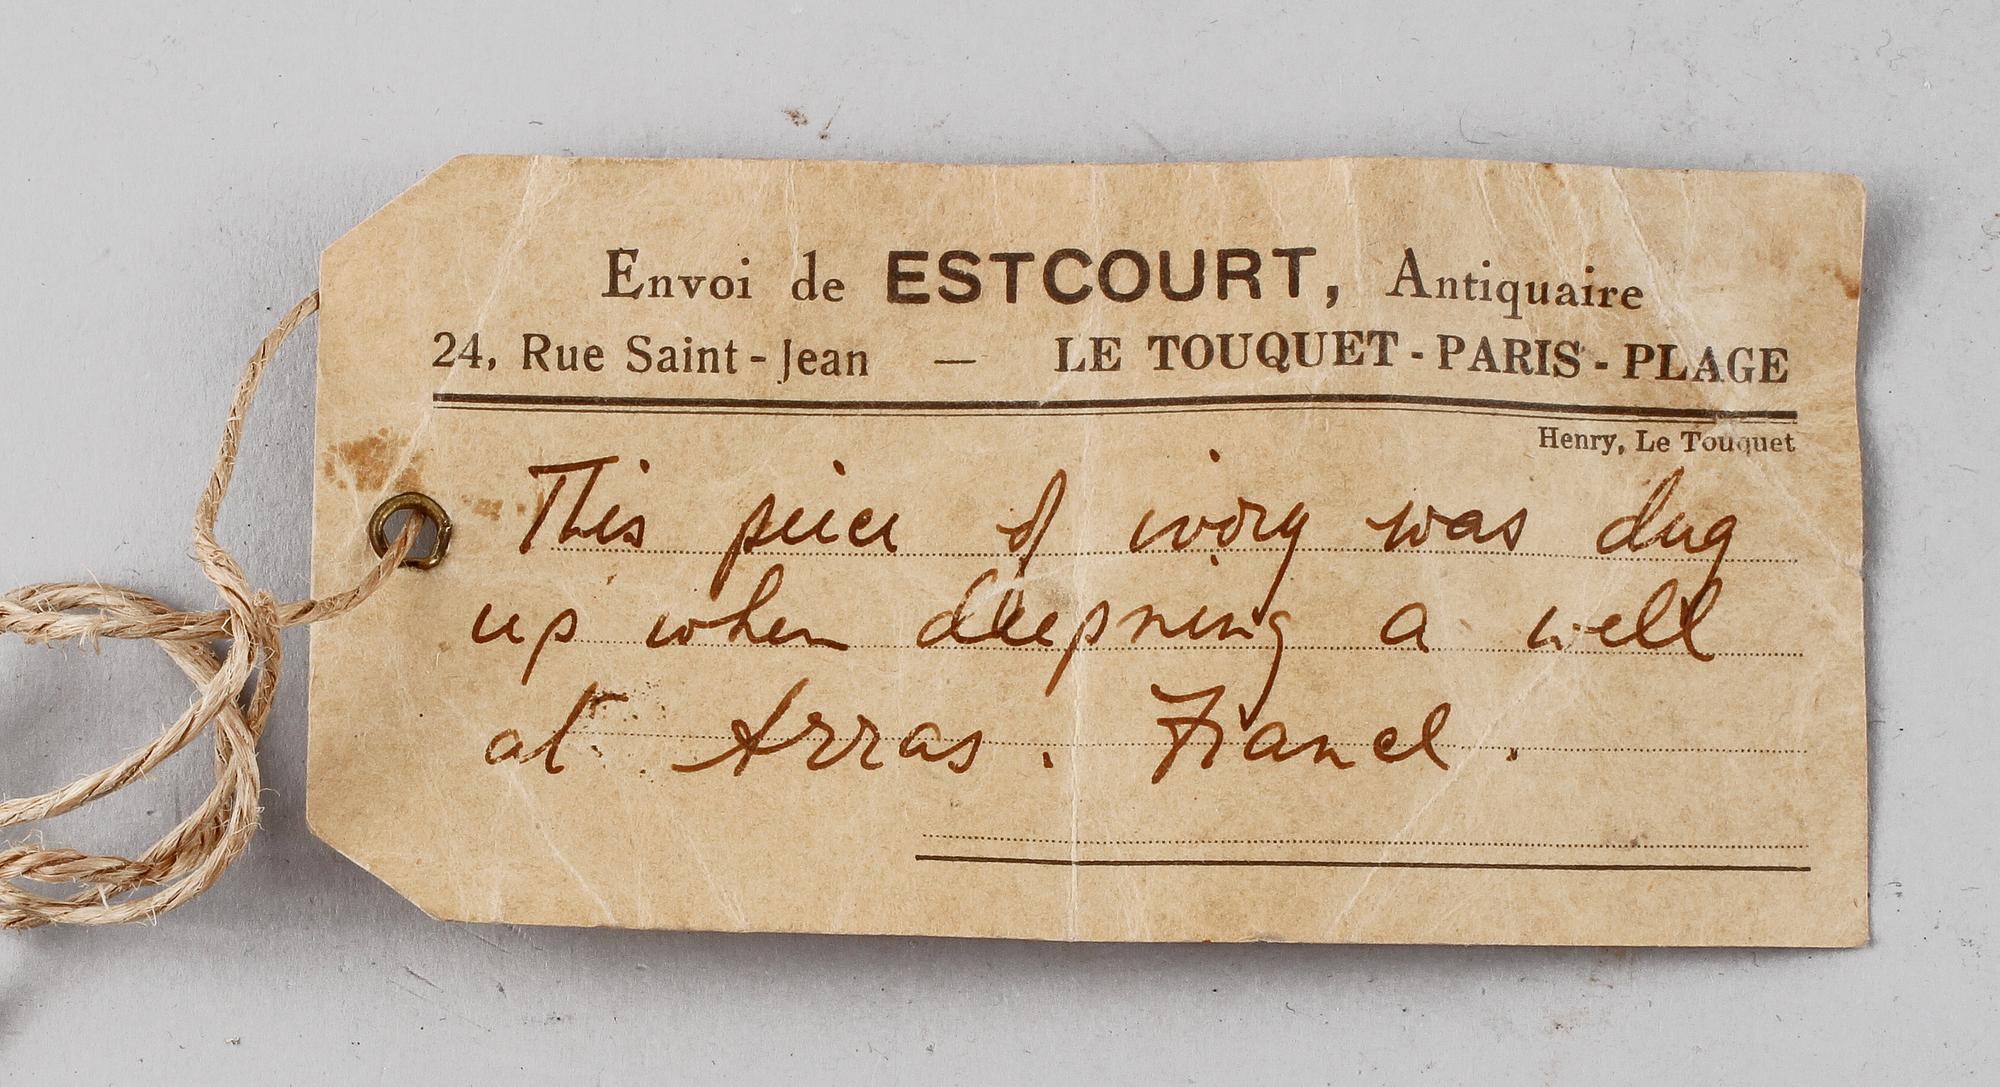 Envoi de ESTCOURT, Antiquaire
24, Rue Saint-Jean — LE TOUQUET-PARIS-PLAGE
Henry, Le Touquet
This piece of ivory was dug
up when deepning a well
at Arras. France.